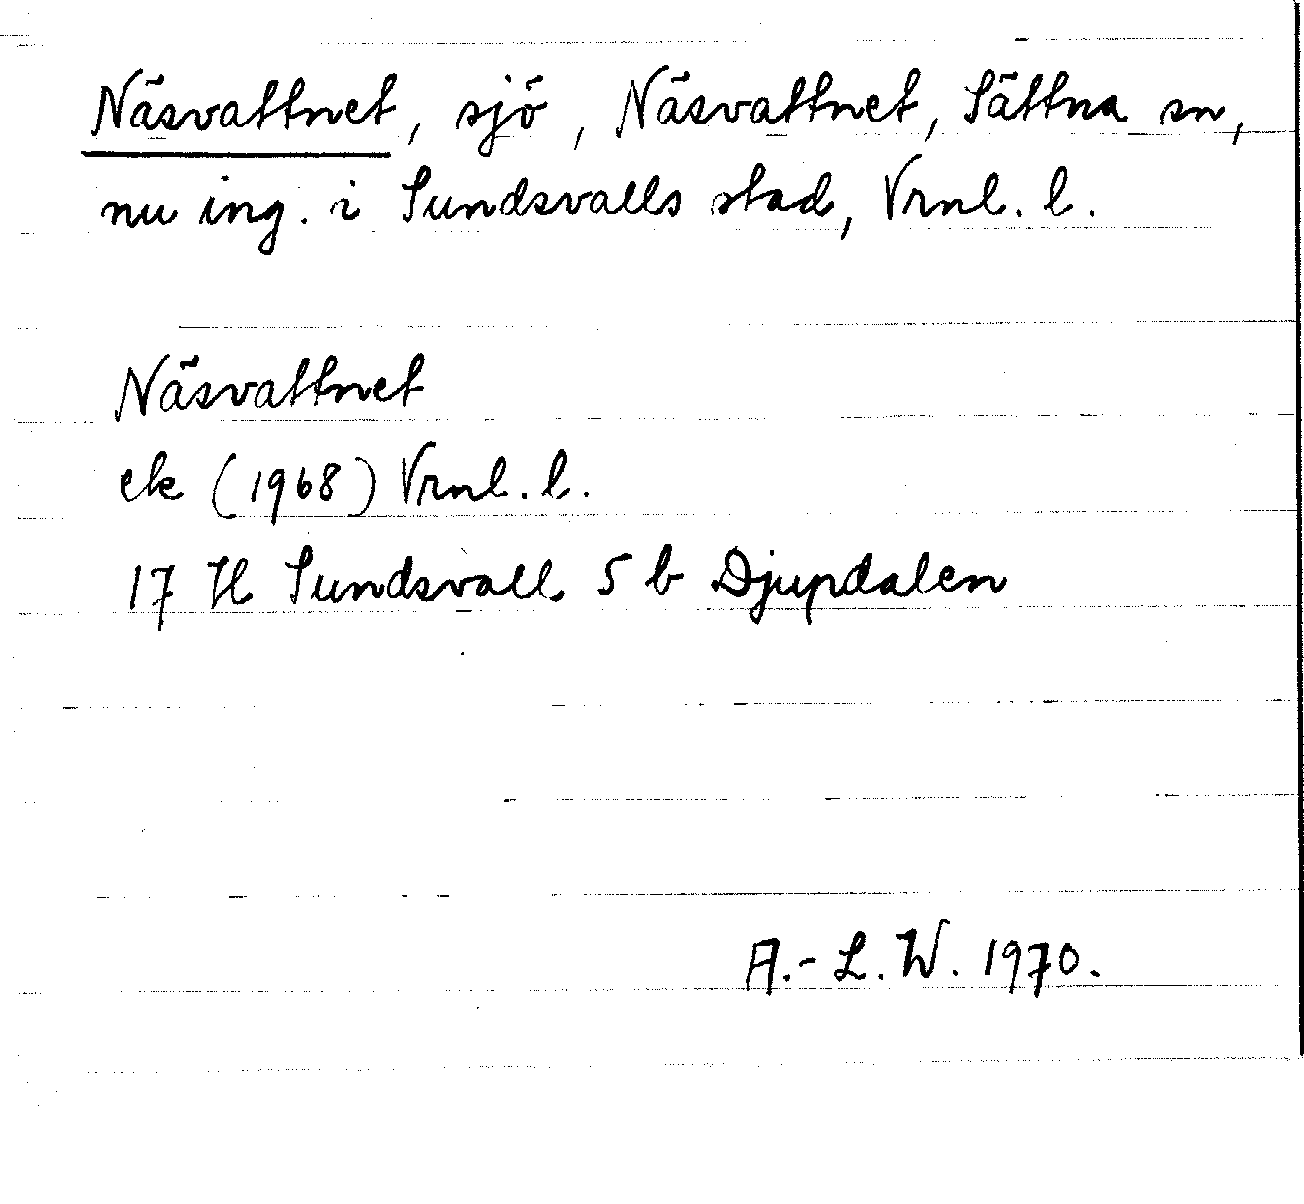 Näsvattnet, sjö, Näsvattnet, Sättna sn,
nu ing. i Sundsvalls stad, Vrnl. l.
Näsvattnet
ek (1968) Vrnl. l.
17 H Sundsvall 5 b Djupdalen
A.-L. W. 1970.